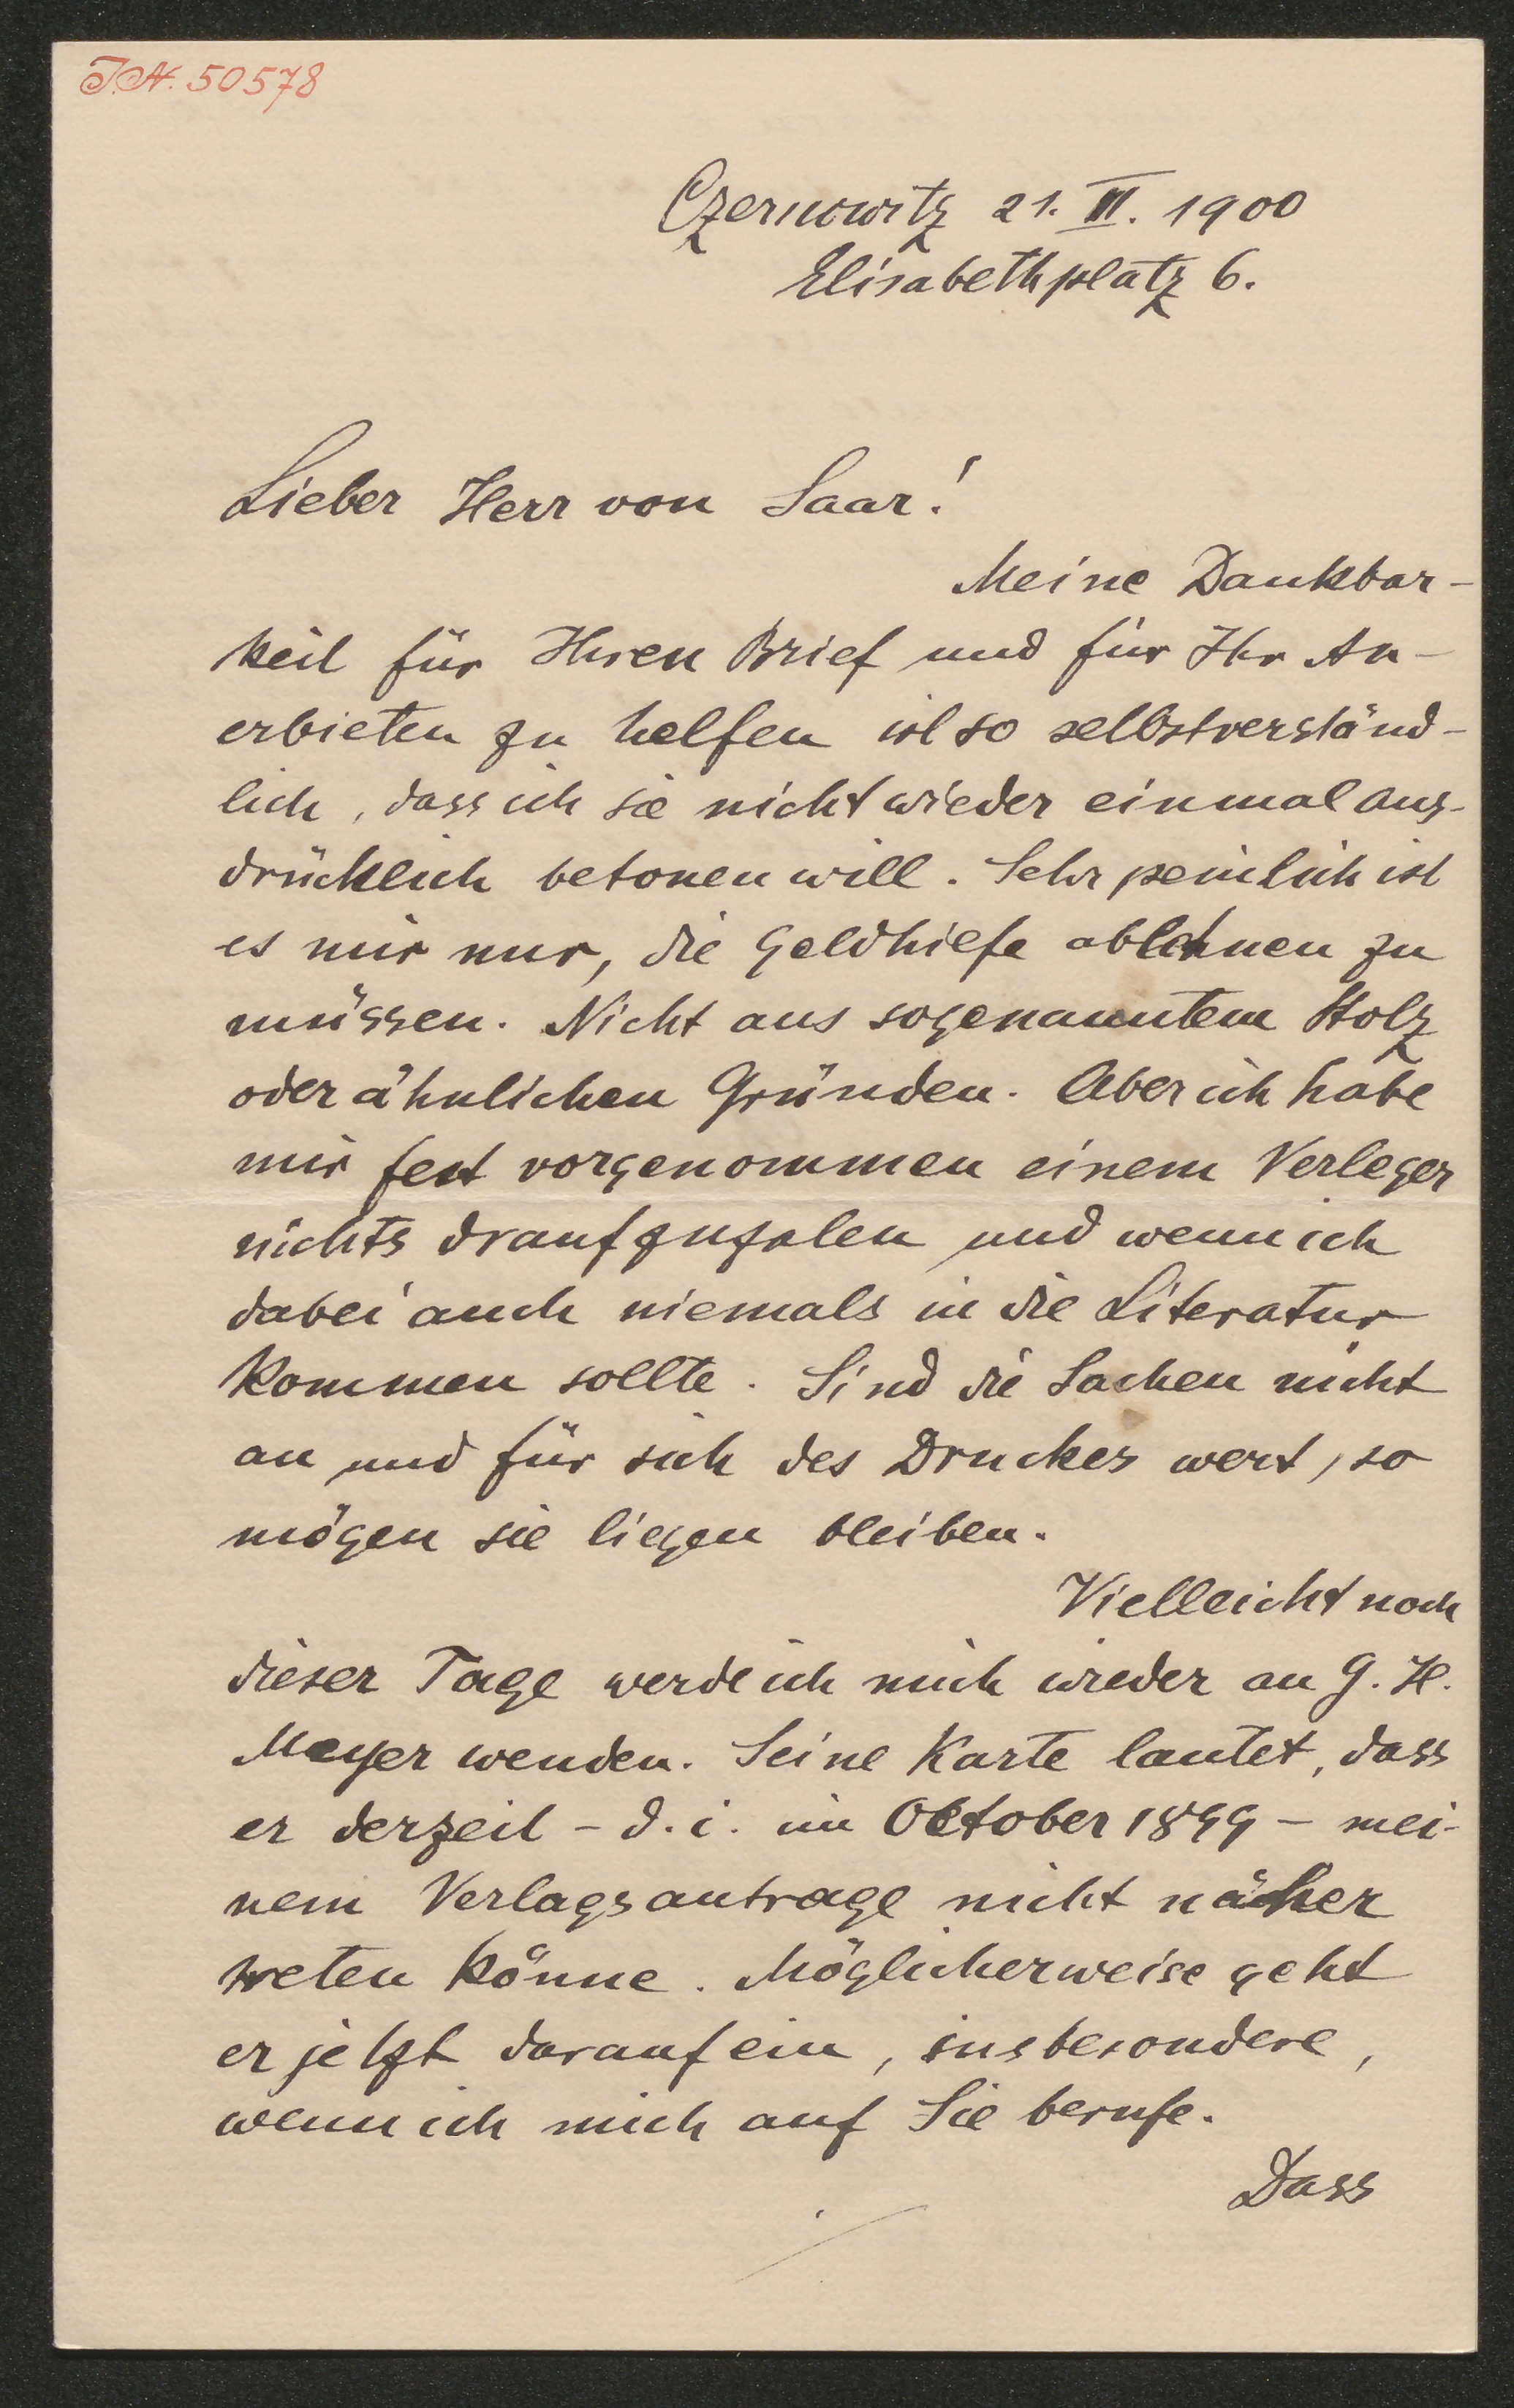 J.N. 50578
Czernowitz 21. III. 1900
Elisabethplatz 6.
Lieber Herr von Saar!
Meine Dankbar-
keit für Ihren Brief und für Ihr An-
erbieten zu helfen ist so selbstverständ-
lich, dass ich sie nicht wieder einmal aus-
drücklich betonen will. Sehr peinlich ist
es mir nur, die Geldhilfe ablehnen zu
müssen. Nicht aus sogenanntem Stolz
oder ähnlichen Gründen. Aber ich habe
mir fest vorgenommen einem Verleger
nichts draufzuzalen und wenn ich
dabei auch niemals in die Literatur
kommen sollte. Sind die Sachen nicht
an und für sich des Druckes wert, so
mögen sie liegen bleiben.
Vielleicht noch
dieser Tage werde ich mich wieder an G. H.
Meyer wenden. Seine Karte lautet, dass
er derzeit – d. i. im Oktober 1899 – mei-
nem Verlagsantrage nicht näher
treten könne. Möglicherweise geht
er jetzt darauf ein, insbesondere,
wenn ich mich auf Sie berufe.
Dass